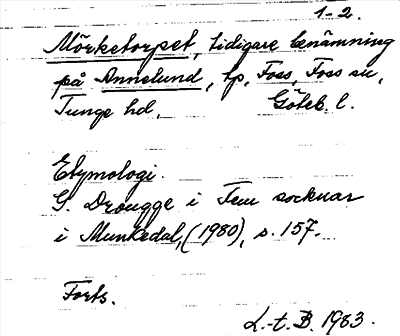 1-2.
Mörketorpet, tidigare benämning
på Annelund, tp, Foss, Foss sn,
Tunge hd, Göteb. l.
Etymologi.
G. Drougge i Fem socknar
i Munkedal, (1980), s. 157.
Forts.
L.-t. B. 1983.